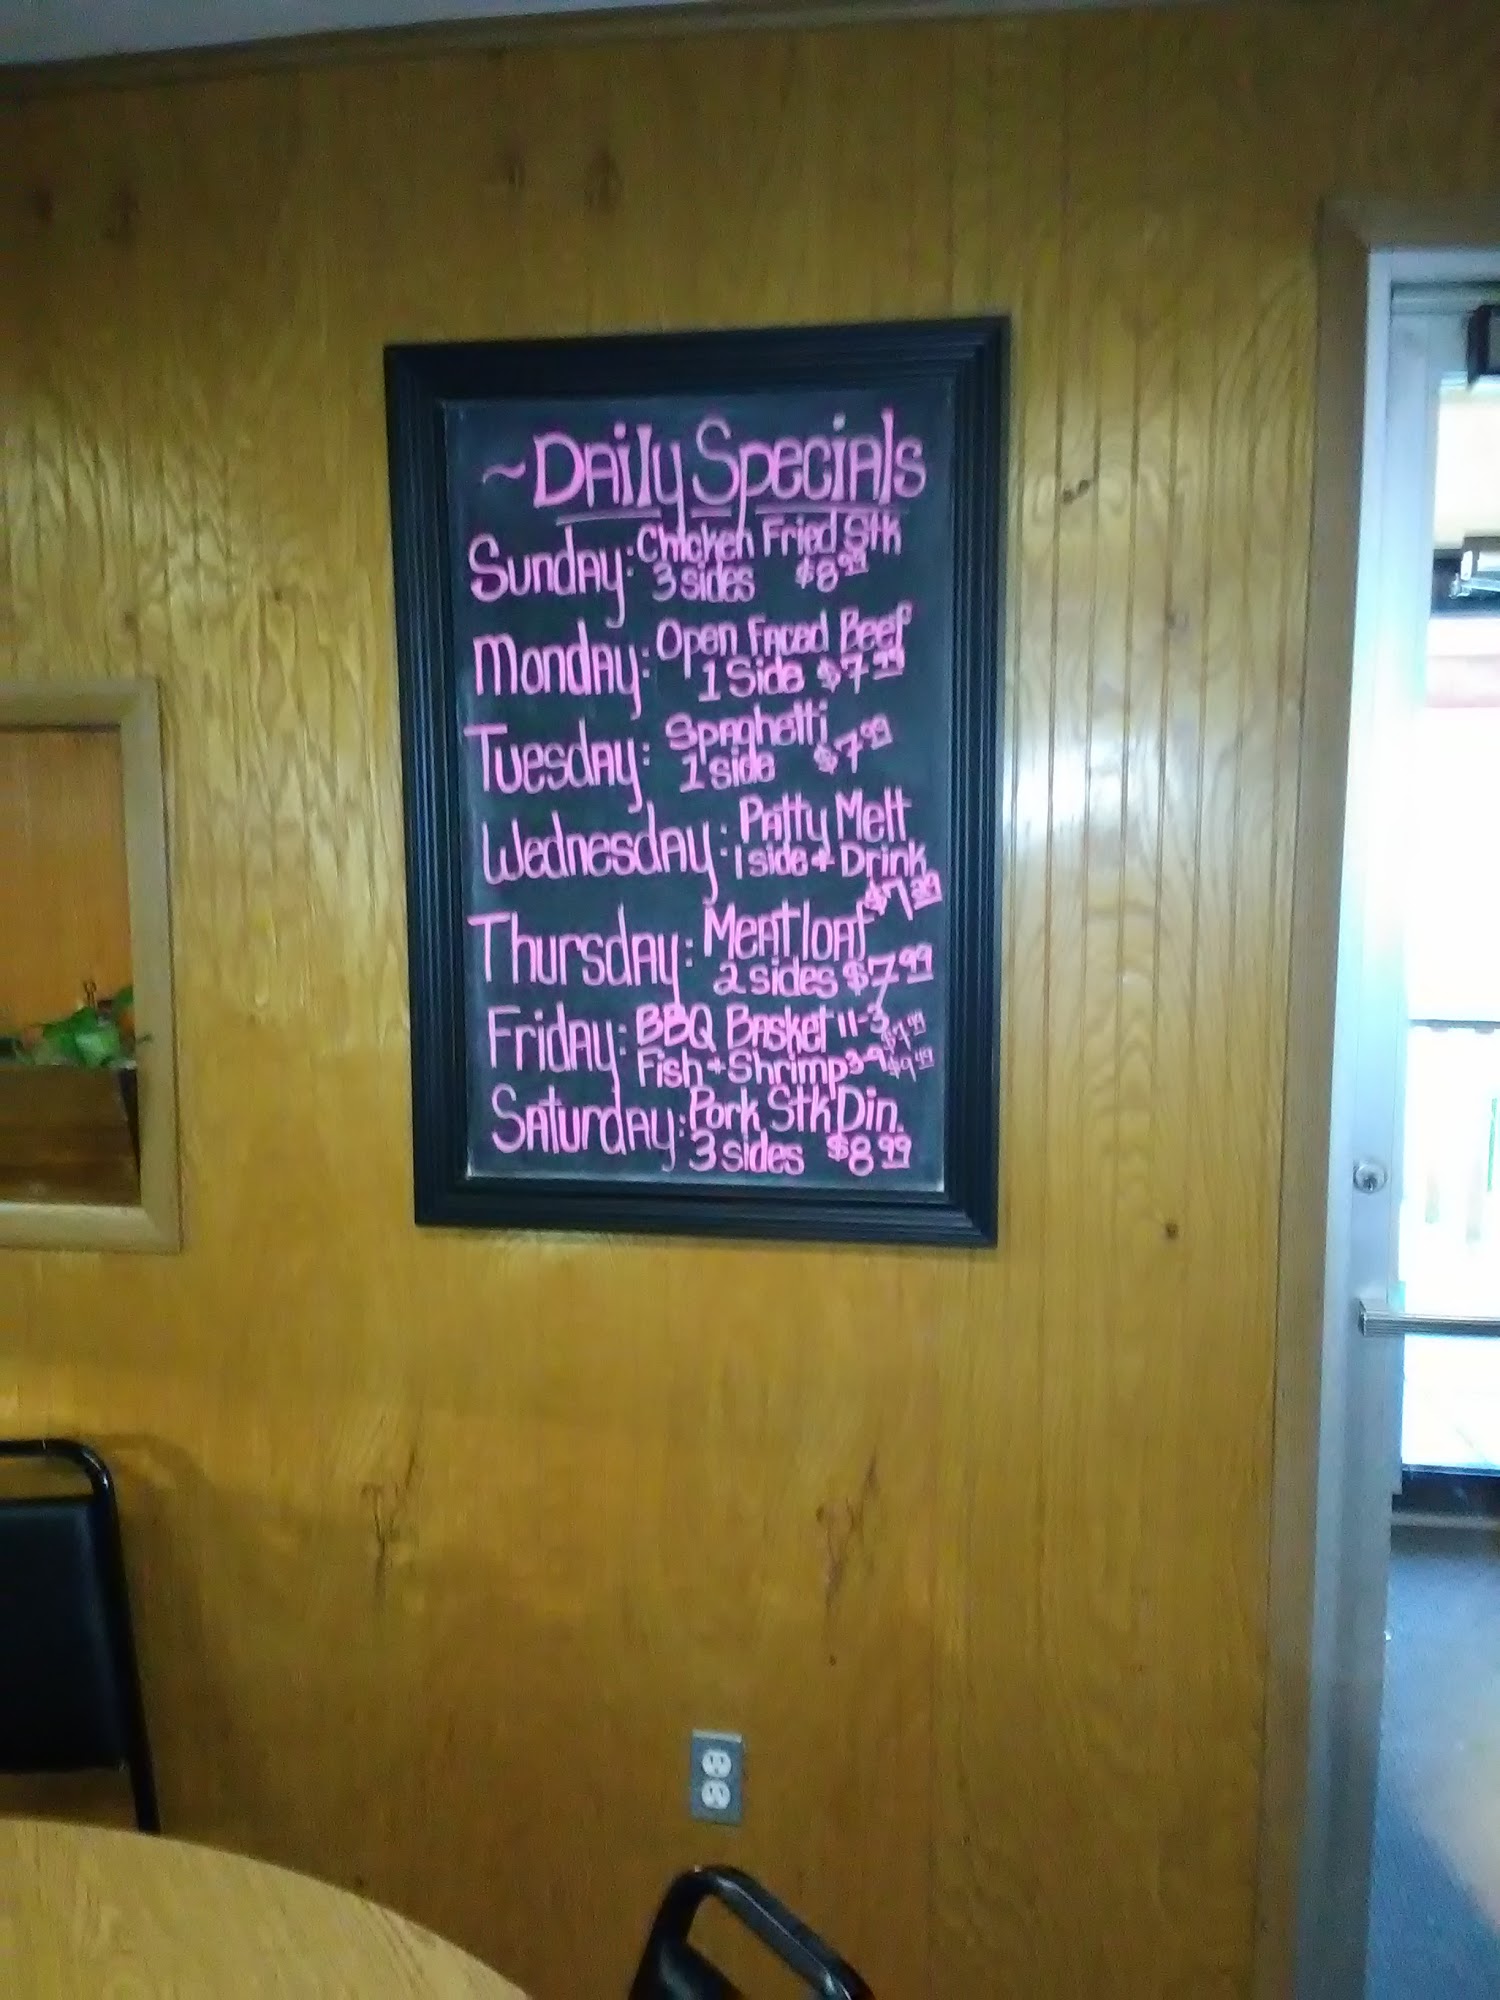 ~Daily Specials
Sunday: Chicken Fried Stk
3 sides $8.99
Monday: Open Faced Beef
1 Side $7.99
Tuesday: Spaghetti
1 side $7.99
Wednesday: Patty Melt
1 side + Drink
Thursday: Meatloaf
2 sides $7.99
Friday: BBQ Basket 11-3 $7.99
Fish + Shrimp 3-9 $9.49
Saturday: Pork Stk Din.
3 sides $8.99